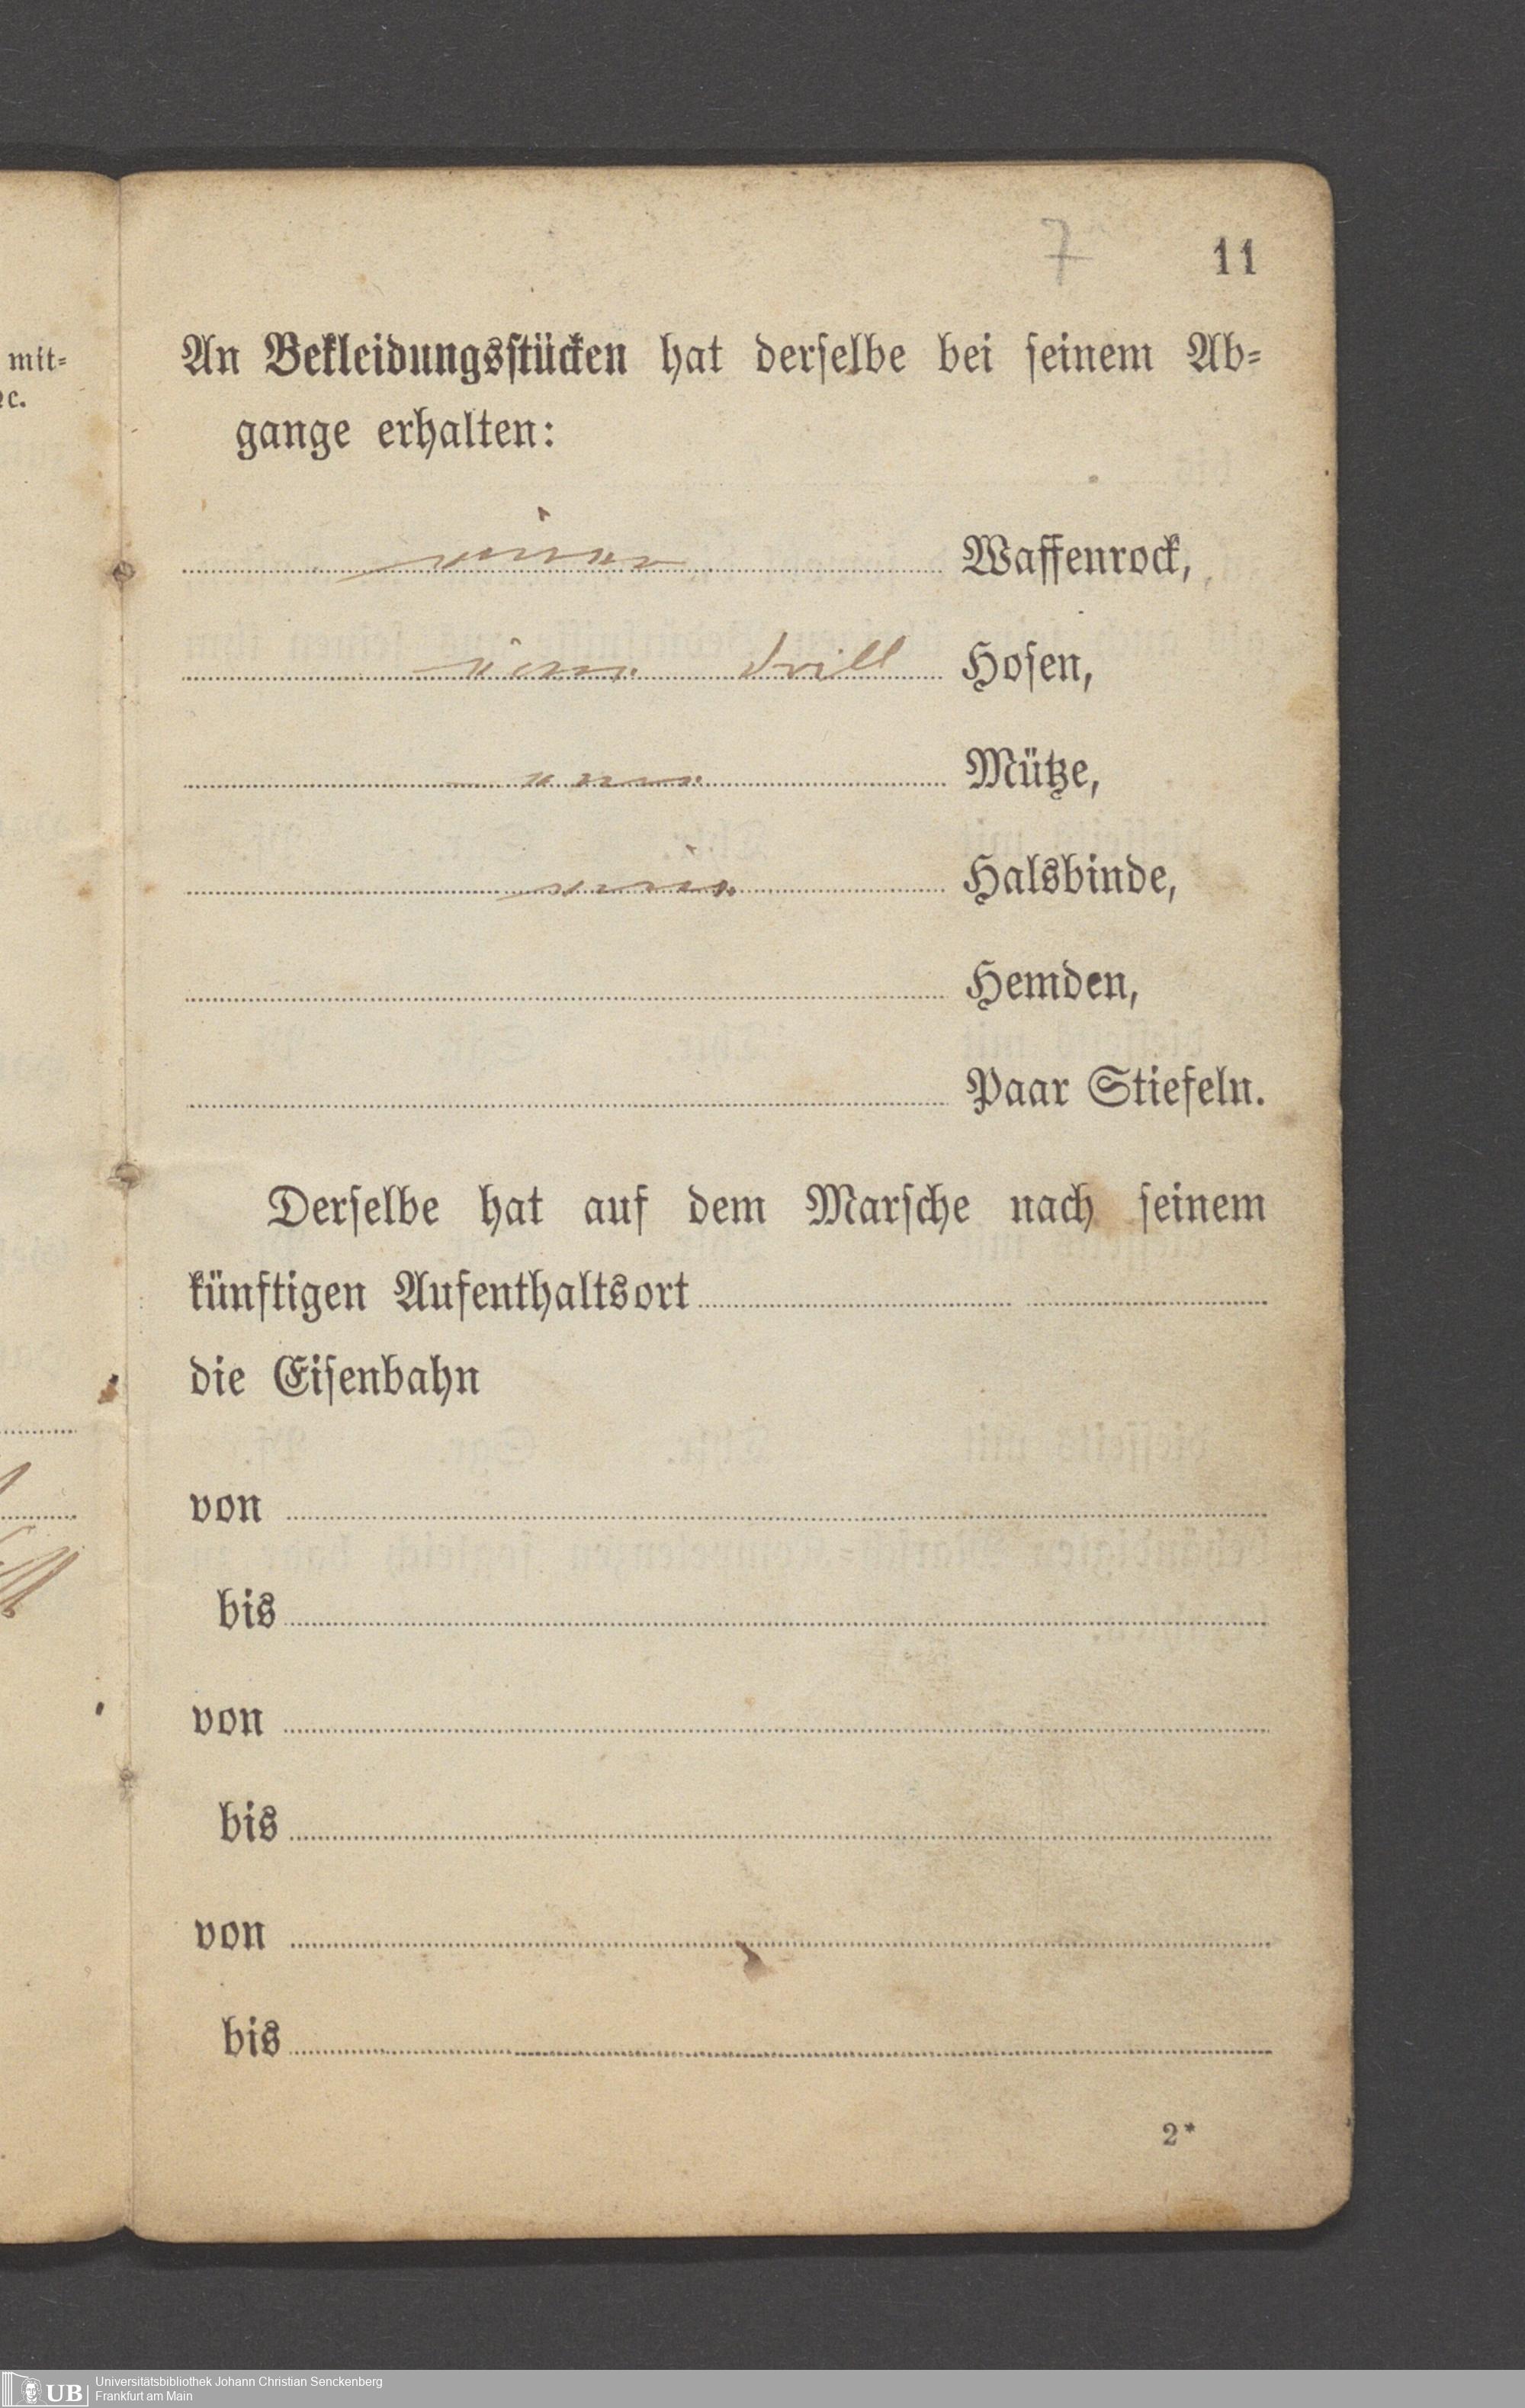 mit-
ꝛc.
7
11
An Bekleidungsſtücken hat derſelbe bei ſeinem Ab-
gange erhalten:
einen Waffenrock,
eine Drill Hoſen,
eine Mütze,
eine Halsbinde,
Hemden,
Paar Stiefeln.
Derſelbe hat auf dem Marſche nach ſeinem
künftigen Aufenthaltsort
die Eiſenbahn
von
bis
von
bis
von
bis
2*
UB
Universitätsbibliothek Johann Christian Senckenberg
Frankfurt am Main